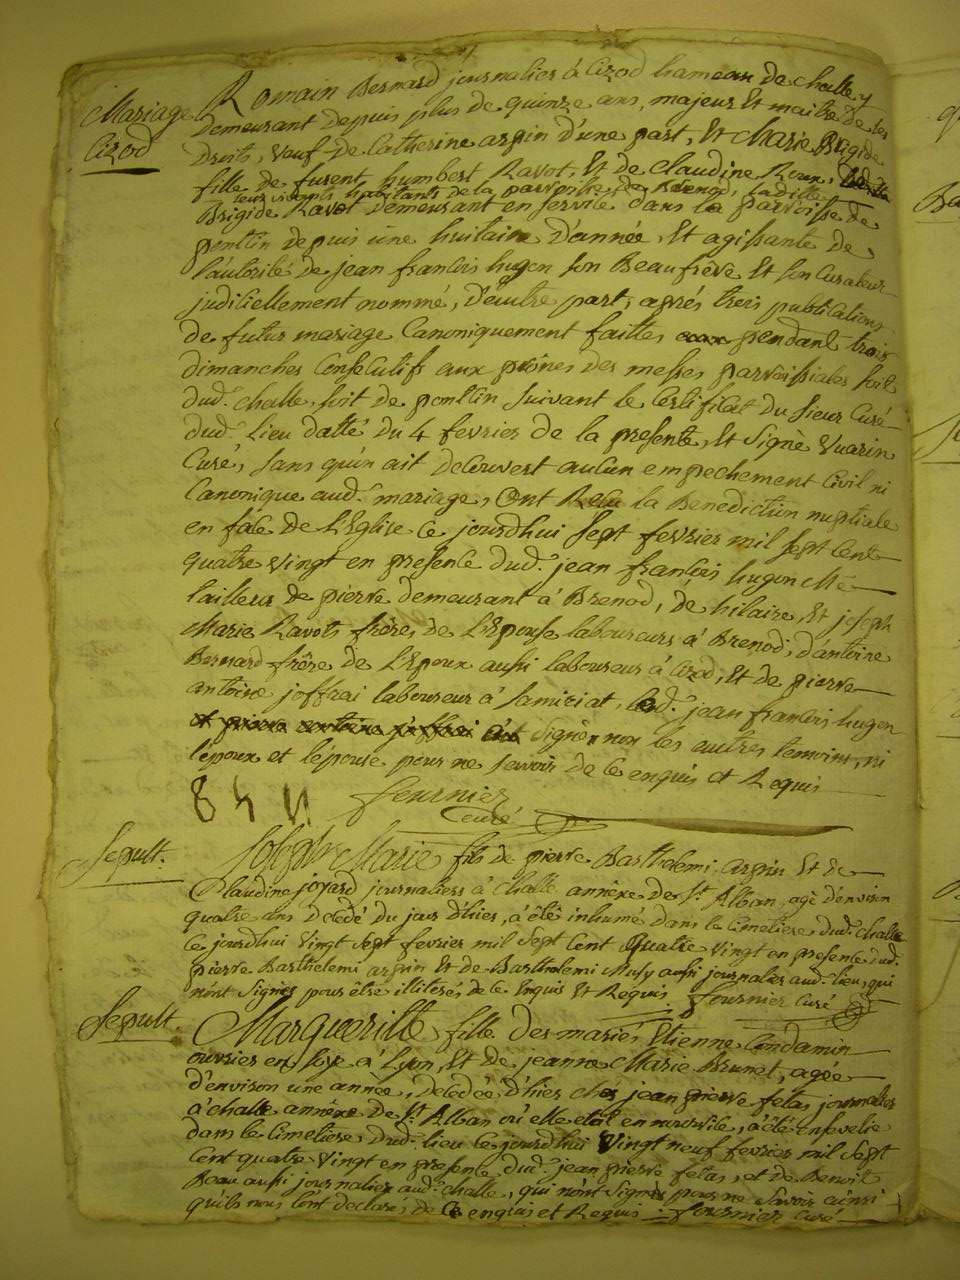 Mariage
Cizod
Romain Bernard journalier à Cizod hameau de challe y
demeurant depuis plus de quinze ans, majeur Et maitre de ses
Droits, veuf de Catherine arpin d'une part, Et Marie Brigide
fille de furent humbert Ravot, Et de Claudine Roux,
leur vivants habitants de la parroisse de Brenod, ladille
Brigide Ravot demeurant en service dans la parroisse de
poncin depuis une huitaine d'année, Et agissante de
l'autorité de jean francois hugon son Beaufrére Et son Curateur
judiciellement nommé, d'autre part, aprés trois publications
de futur mariage Canoniquement faittes pendant trois
dimanches Consecutifs aux prônes des messes parroissiales soit
dud.t challe, soit de poncin suivant le Certificat du sieur Curé
dud.t Lieu datté du 4 fevrier de la presente, Et signé Vuarin
Curé, sans qu'on ait decouvert aucun empechement Civil ni
Canonique aud.t mariage, Ont Reçu la Benediction nuptiale
en face de L'Eglise Ce jourdhui sept fevrier mil sept Cent
quatre vingt en presence dud.t jean francois hugon Me
tailleur de pierre demeurant à Brenod, de hilaire, Et joseph
Marie Ravots fréres de L'Epouse laboureurs à Brenod, d'antoine
Bernard frére de L'Epoux aussi laboureur à Cizod, Et de pierre
antoine joffrai laboureur à samiriat, led.t jean francois hugon
et pierre antoine joffrai ont signé, non les autres temoins, ni
l'époux et l'épouse pour ne savoir de ce enquis et Requis
fournier
curé
Sepult.
Joseph Marie fils de pierre Barthelemi arpin Et de
Claudine joyard journaliers à challe annéxe de S.t Alban, agé d'environ
quatre ans Decedé du jour d'hier, à été inhumé dans le Cimetiere dud.t challe
Ce jourdhui vingt sept fevrier mil sept Cent Quatre vingt en presence dud.t
pierre Barthelemi arpin Et de Barthelemi Musy aussi journalier aud.t lieu, qui
n'ont signés pour être illiterés de Ce Enquis Et Requis. fournier curé
Sepult.
Marguerilte fille des mariés Etienne Condamin
ouvrier en soye à Lyon, Et de jeanne Marie Brunet, agée
d'environ une année, decedée d'hier chés jean pierre felas journalier
à challe annéxe de S.t Alban où elle etoit en nourrice, à été ensevelie
dans le Cimetiere dud.t lieu Ce jourdhui Vingt neuf fevrier mil sept
Cent quatre vingt en presence dud.t jean pierre felas, et de Benoit
Beau aussi journalier aud.t challe, qui n'ont signés pour ne savoir ainsi
qu'ils nous l'ont declaré, de Ce enquis et Requis. fournier curé